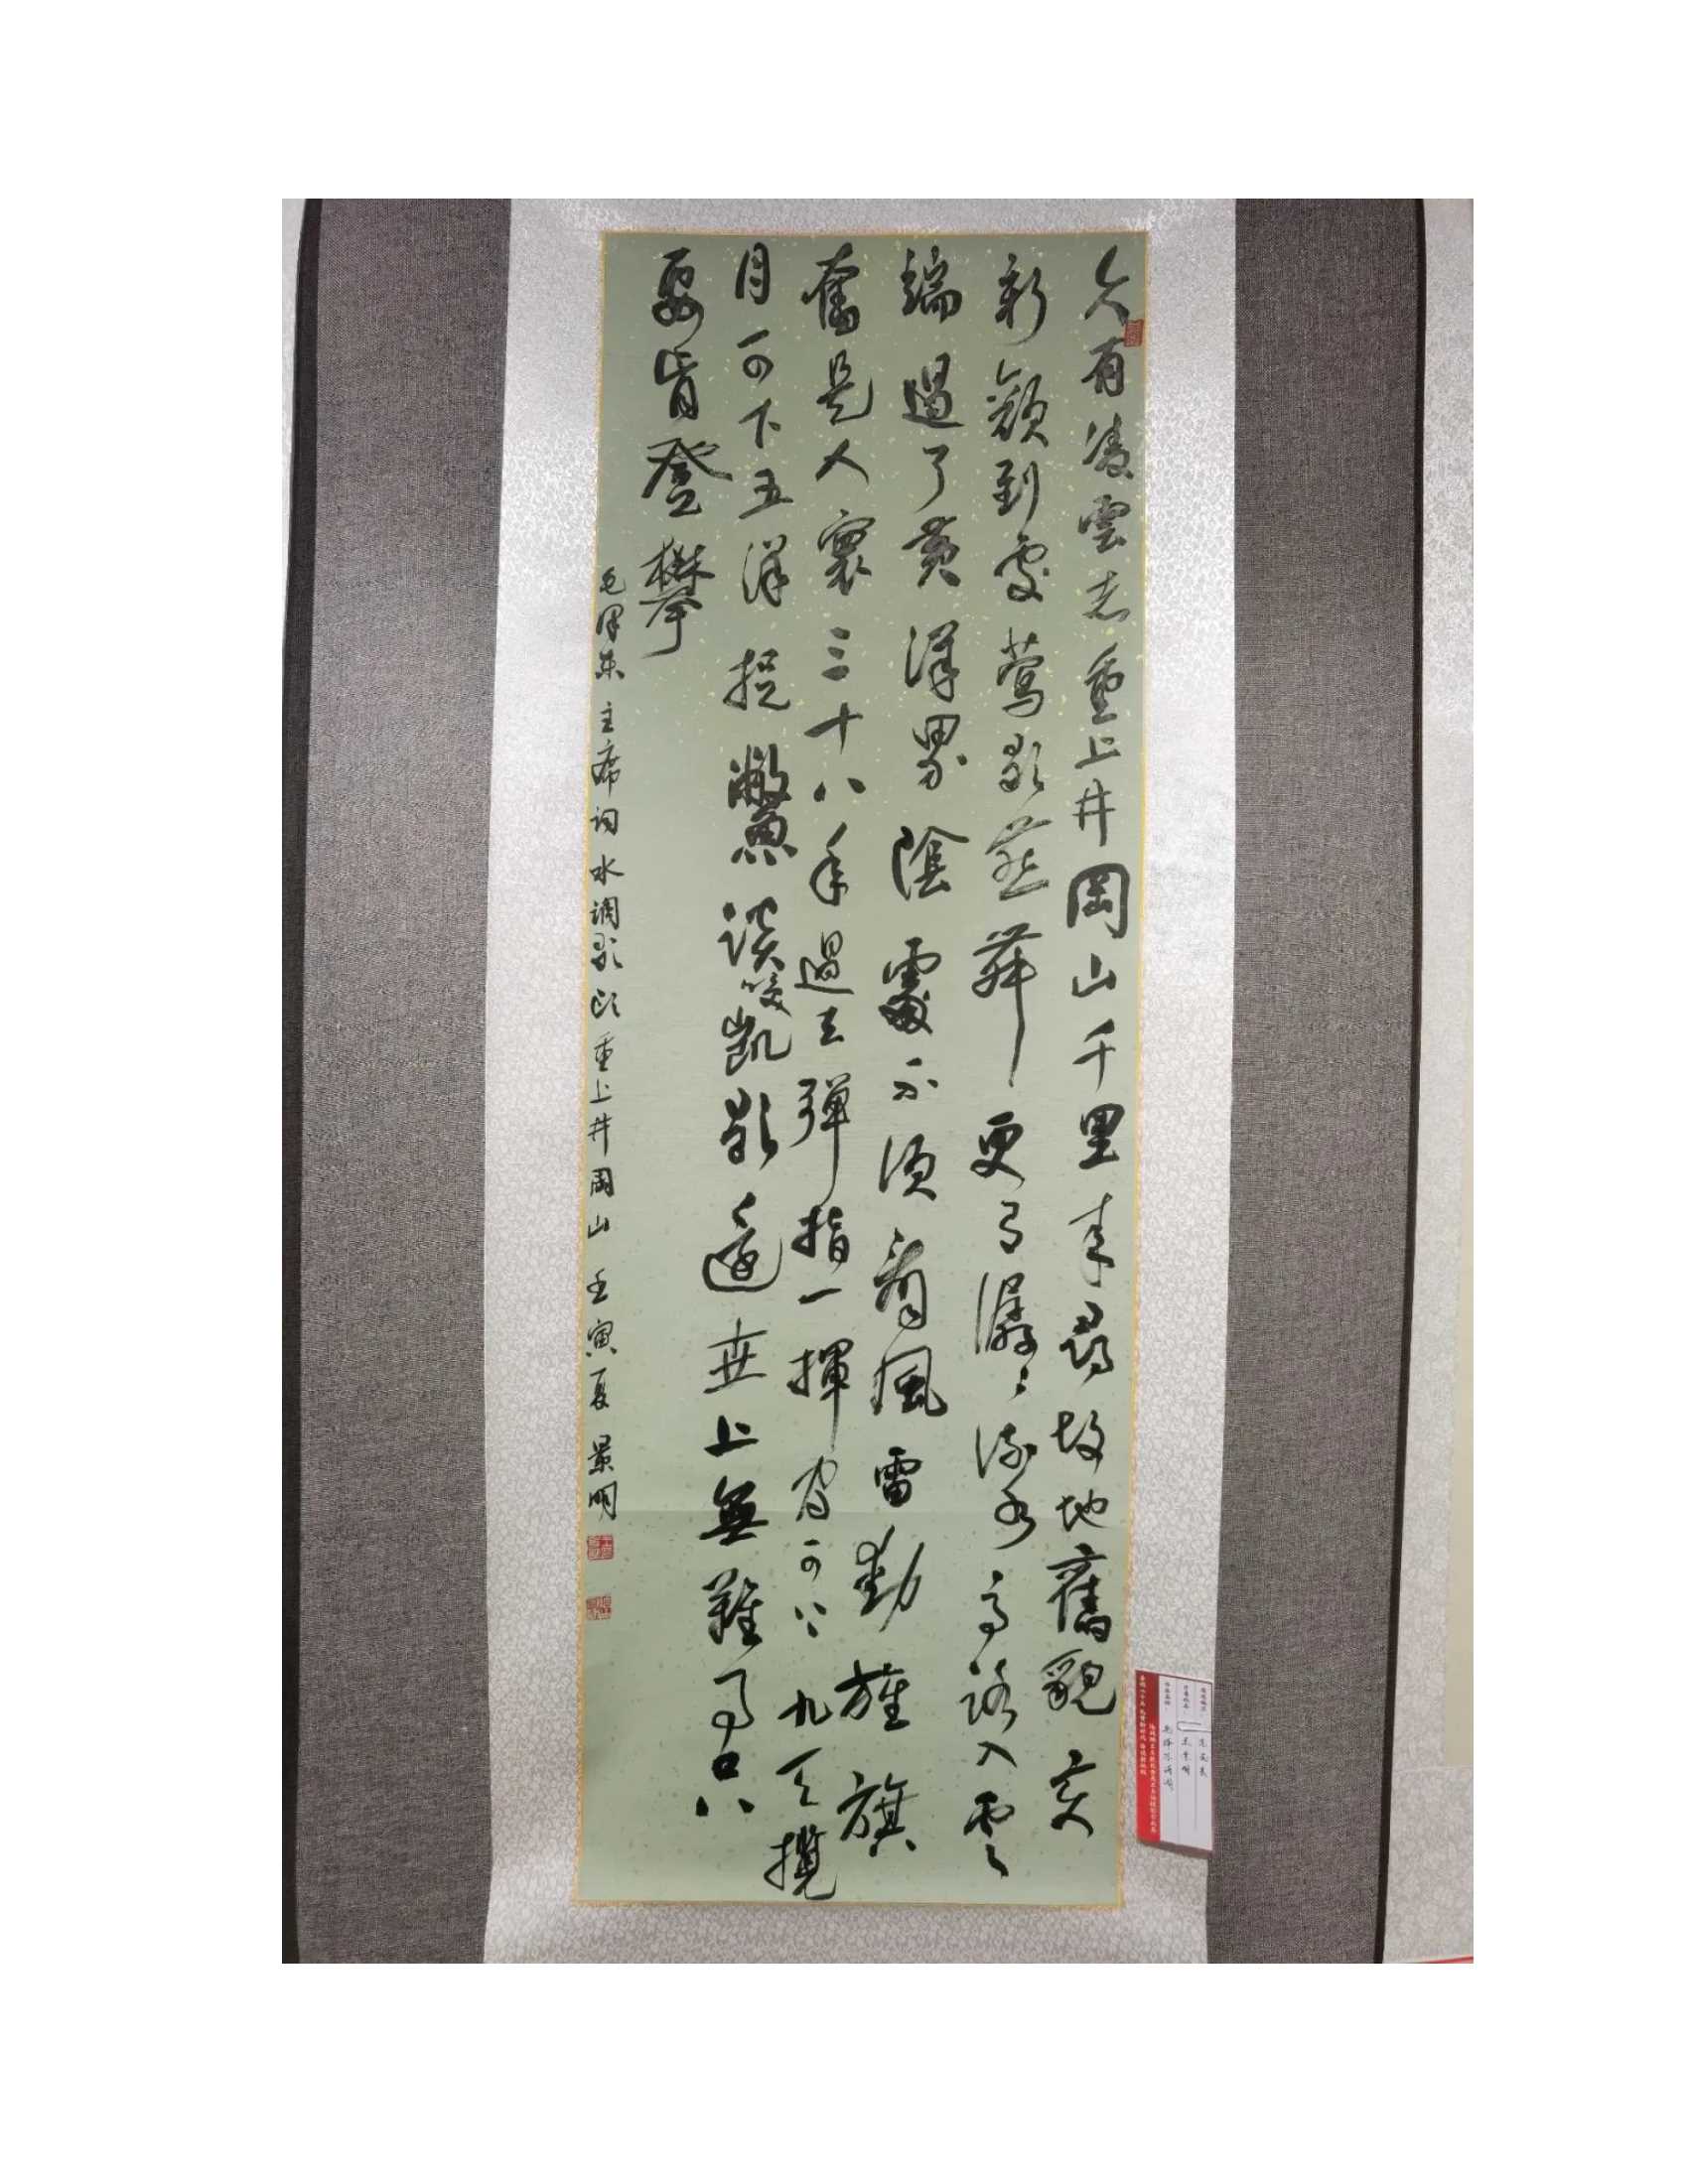 久有凌雲志重上井岡山千里来尋故地舊貌変
新顏到處莺歌燕舞更有潺〻流水高路入雲
端過了黄洋界險處不須看風雷動旌旗
奮是人寰三十八年過去彈指一揮间可上九天攬
月可下五洋捉鱉談笑凯歌還世上無難事只
要肯登攀
毛泽东主席词水调歌头重上井岡山 壬寅夏 景明